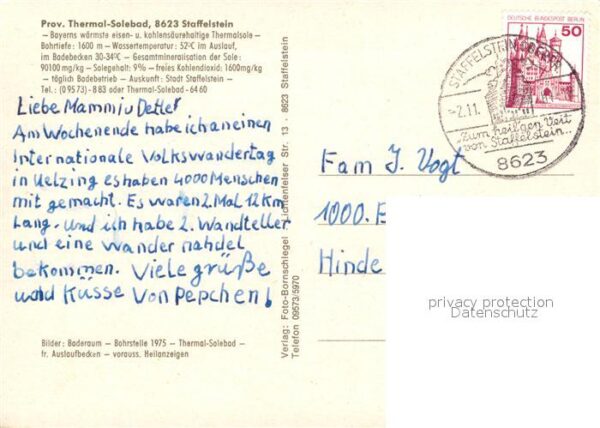 Prov. Thermal-Solebad, 8623 Staffelstein
– Bayerns wärmste eisen- u. kohlensäurehaltige Thermalsole –
Bohrtiefe: 1600 m – Wassertemperatur: 52°C im Auslauf,
im Badebecken 30-34°C – Gesamtmineralisation der Sole:
90100 mg/kg – Solegehalt: 9% – freies Kohlendioxid: 1600mg/kg
– täglich Badebetrieb – Auskunft: Stadt Staffelstein –
Tel.: (09573) - 883 oder Thermal-Solebad - 6460
Liebe Mammi u Detlef
Am Wochenende habe ich an einen
Internationale Volkswandertag
in Uetzing es haben 4000 Menschen
mit gemacht. Es waren 2. Mal 12 Km
Lang. und ich habe 2. Wandteller
und eine Wander nahdel
bekommen. Viele grüße
und Küsse von Pepchen!
Bilder: Baderaum – Bohrstelle 1975 – Thermal-Solebad –
fr. Auslaufbecken – vorauss. Heilanzeigen
Verlag: Foto-Bornschlegel Lichtenfelser Str. 13 · 8623 Staffelstein
Telefon 09573/5970
DEUTSCHE BUNDESPOST BERLIN
50
STAFFELSTEIN
-2.11.
"Zum heil'gen Veit
von Staffelstein..."
8623
Fam J. Vogt
1000.
Hinde
privacy protection
Datenschutz